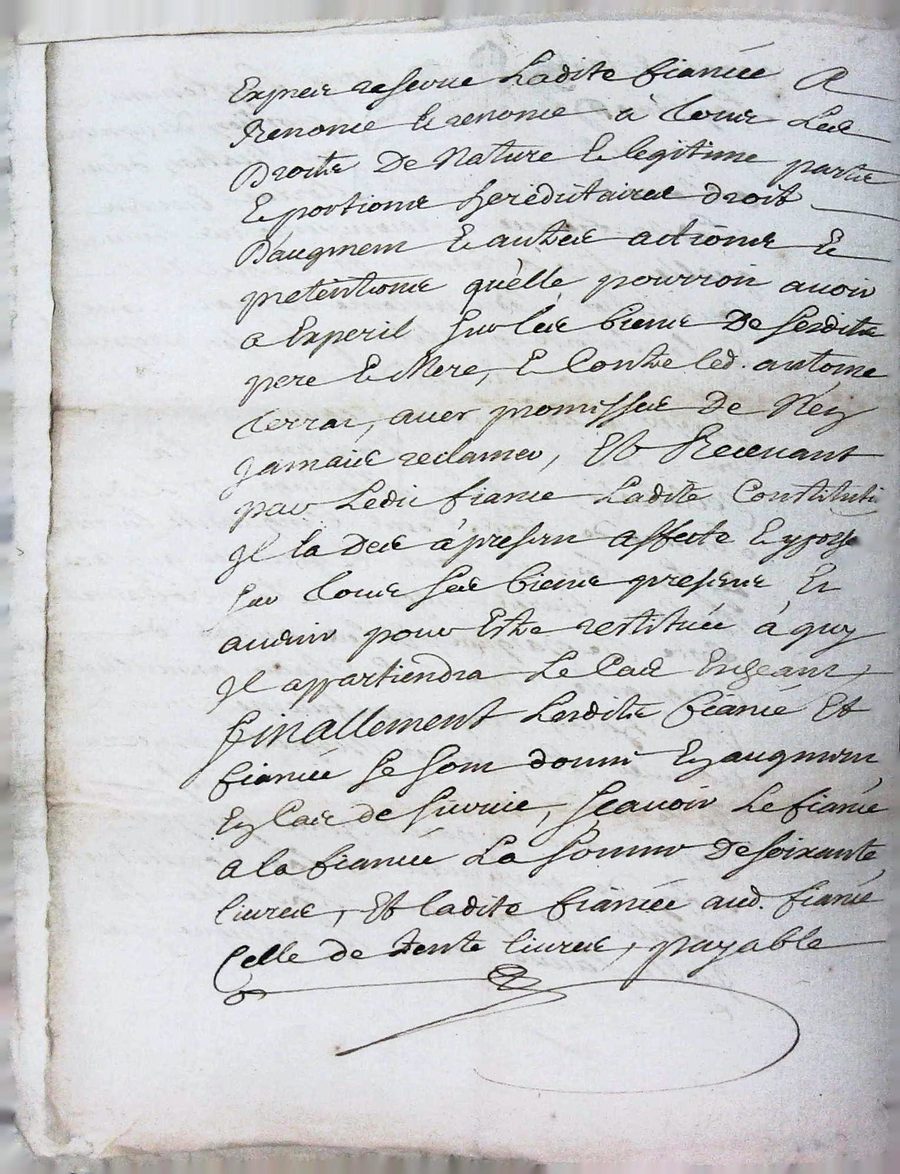 Expresse reserve Ladite fiancée A
Renoncé Et renonce à tous Les
Droits De Nature Et legitime partie
Et portions hereditaires droit
D'augment Et autres actions Et
pretentions qu'elle pourroit avoir
a Exper Sur les biens De Sesdits
pere Et Mere, Et Contre led. antoine
terrai, avec promisse De N'ey
Jamais reclamer, Et Recevant
par Ledit fiance Ladite Constituti
Il la Des à present affecte Et ypotq
Sur tous Ses biens presens Et
avenir pour Estre restituée à quy
Il appartiendra Le Cas Escheant,
finallement Lesdits fiancé Et
fiancée Se Sont donné Ey augment
Ey Cas de Survie, Scavoir Le fiancé
a la fiancée La Somme De Soixante
livres, Et ladite fiancée aud. fiancé
Celle de trente livres, payable